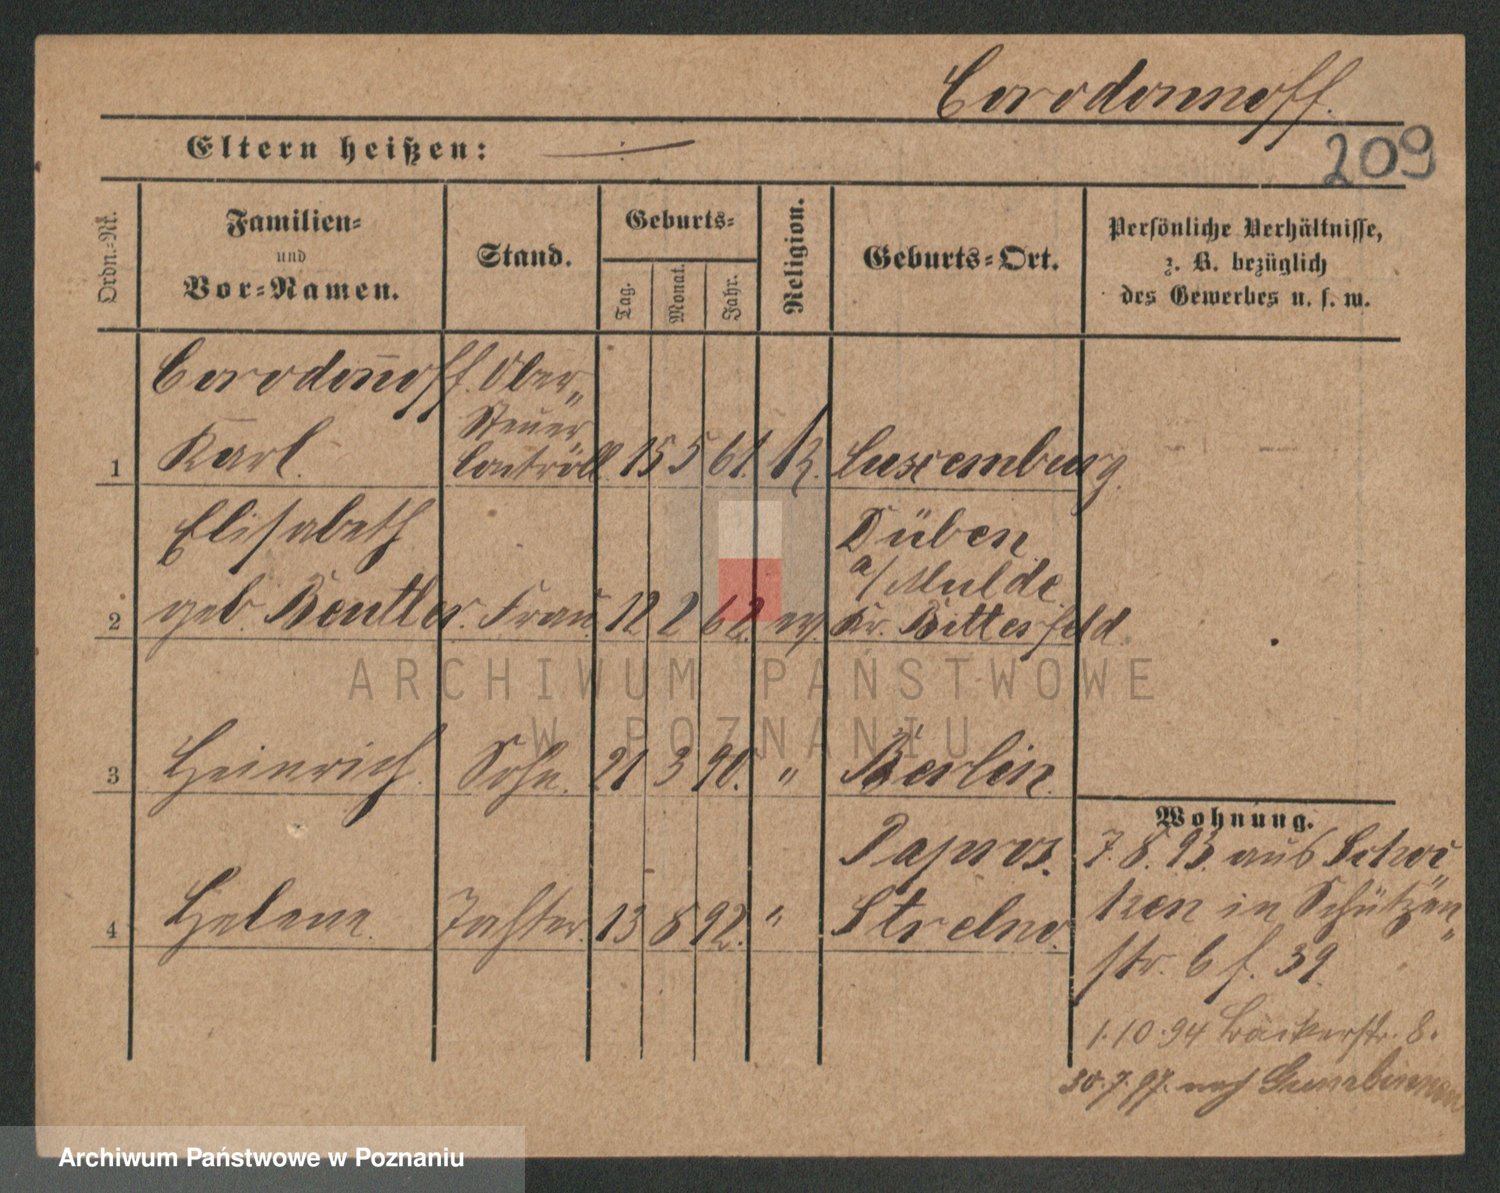 Corodonnoff.
209
Eltern heißen: —
Ordn.-Nr.
Familien-
und
Vor-Namen.
Stand.
Geburts-
Tag.
Monat.
Jahr.
Religion.
Geburts-Ort.
Persönliche Verhältnisse,
z. B. bezüglich
des Gewerbes u. s. w.
Corodon̄off. Ober-
Steuer
1 Karl. Controll. 15 5 61. K. Luxemburg.
Elisabeth Düben
a/Mulde
2 geb. Beutler. Frau. 12 2 62. ev. Kr. Bitterfeld
3 Heinrich. Sohn. 21 3 90. " Berlin.
Papros.
4 Helene. Tochter. 13 8 92. " Strelno.
Wohnung.
7.8.93. aus Schoc
ken in Schützen
str. 6 f. 39.
1.10.94 Bäckerstr. 8.
30.7.97. nach Gumbinnen
ARCHIWUM PAŃSTWOWE
W POZNANIU
Archiwum Państwowe w Poznaniu